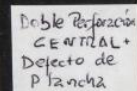 Doble Perforación
CENTRAL +
Defecto de
Plancha